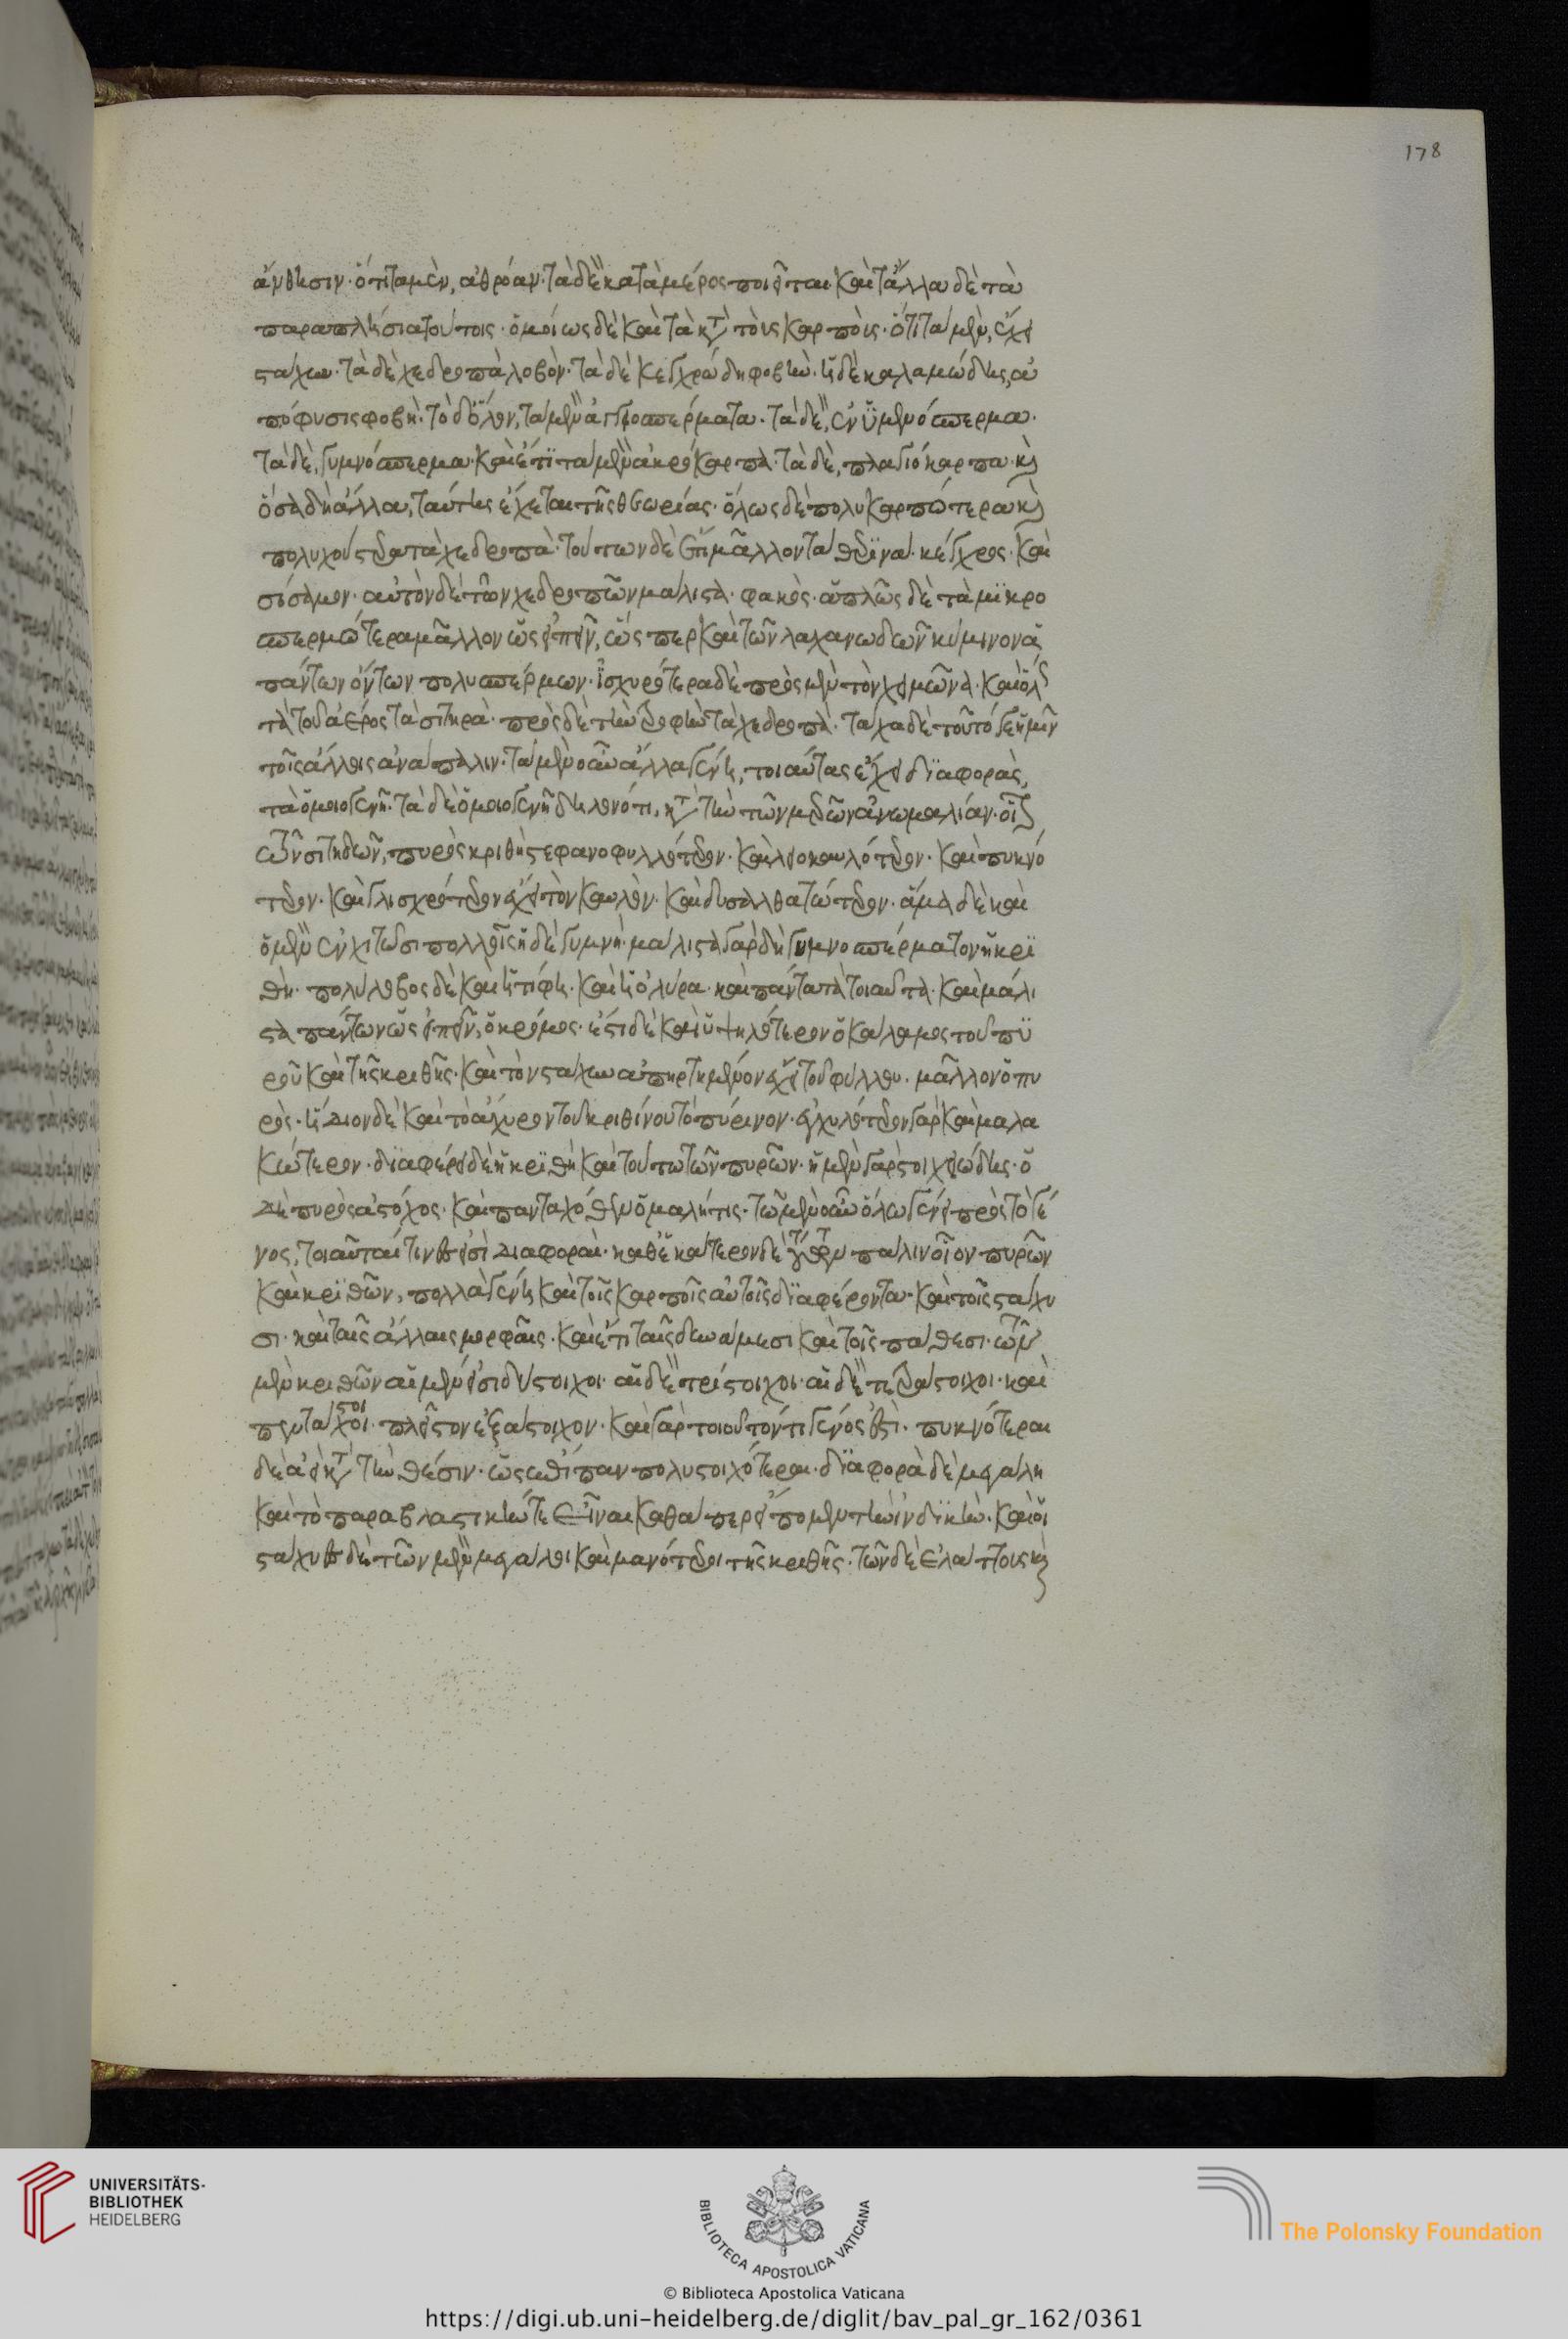 178
ἄνθησιν· ὅτι τα μὲν, ἀθρόαν· τὰ δὲ κατὰ μέρος ποιεῖται· καὶ τἄλλα δὲ τὰ
παραπλήσια τούτοις· ὁμοίως δὲ καὶ τὰ κατὰ τοὺς καρποὺς· ὅτι τὰ μὲν, ἔχει
στάχυν· τὰ δὲ χεδροπὰ λοβὸν· τὰ δὲ κεγχρώδη φοβὴν· ἡ δὲ καλαμώδης, ἀ
πόφυσις φοβὴ· τὸ δ' ὅλον, τὰ μὲν ἀγγοσπέρματα· τὰ δὲ, ἐν ὑμενόσπερμα·
τὰ δὲ, γυμνόσπερμα· καὶ ἔτι τὰ μὲν ἀκρόκαρπα· τὰ δὲ, πλαγιόκαρπα· καὶ
ὅσα δὴ ἄλλα, ταύτης ἔχεται τῆς θεωρίας· ὅλως δὲ πολυκαρπώτερα καὶ
πολυχούστερα τὰ χεδροπὰ· τούτων δὲ ἔτι μᾶλλον τὰ θερινὰ· κέγχρος· καὶ
σίσαμον· αὐτὸν δὲ τῶν χεδροπῶν μάλιστα· φακὸς· ἁπλῶς δὲ τὰ μικρο
σπερμώτερα μᾶλλον ὡς εἰπεῖν, ὥσπερ καὶ τῶν λαχανωδῶν κύμινον ἁ
πάντων ὄντων πολυσπέρμων· ἰσχυρότερα δὲ πρὸς μὲν τὸν χειμῶνα· καὶ ὅλως
τὰ τοῦ ἀέρος τὰ σιτηρὰ· πρὸς δὲ τὴν τροφὴν τὰ χεδροπὰ· τάχα δὲ τοῦτό γε ἡμῖν
τοῖς ἄλλοις ἀνάπαλιν· τὰ μὲν οὖν ἄλλα γένη, τοιαύτας ἔχει διαφορὰς,
τὰ ὁμοιογενῆ· τὰ δὲ ὁμοιογενῆ δηλονότι, κατὰ τὴν τῶν μερῶν ἀνωμαλίαν· οἷον
τῶν σιτηδῶν, πυρὸς κριθὴ στεφανοφυλλότερον· καὶ λειοκαυλότερον· καὶ πυκνό
τερον· καὶ γλισχρότερον ἔχει τὸν καυλὸν· καὶ δυσαλθατώτερον· ἅμα δὲ καὶ
ὁ μὲν ἐν χιτῶσι πολλοῖς ἡ δὲ γυμνή· μάλιστα γὰρ δὴ γυμνοσπέρματον ἡ κρι
θὴ· πολύλοβος δὲ καὶ ἡ τίφη· καὶ ἡ ὀλύρα· καὶ πάντα τὰ τοιαῦτα· καὶ μάλι
στα πάντων ὡς εἰπεῖν, ὁ κρόμος· ἔστι δὲ καὶ ὑψηλότερον ὁ κάλαμος τοῦ πυ
ροῦ καὶ τῆς κριθῆς· καὶ τὸν στάχυν ἀπηρτημένον ἔχει τοῦ φύλλου· μᾶλλον ὁ πυ
ρὸς· ἥδιον δὲ καὶ τὸ ἄχυρον τοῦ κριθίνου τὸ πύρινον· ἐγχυλότερον γὰρ καὶ μαλα
κώτερον· διαφέρει δὲ ἡ κριθὴ καὶ τούτω τῶν πυρῶν· ἡ μὲν γὰρ στοιχειώδης· ὁ
δὲ πυρὸς ἄστοχος· καὶ πανταχόθεν ὁμαλή τις· τῶ μὲν οὖν ὅλω γένει πρὸς τὸ γέ
νος, τοιαῦταί τινές εἰσι διαφοραὶ· καθ' ἑκάτερον δὲ τούτων πάλιν οἷον πυρῶν
καὶ κριθῶν, πολλὰ γένη καὶ τοῖς καρποῖς αὐτοῖς διαφέροντα· καὶ τοῖς στάχυ
σι· καὶ ταῖς ἄλλαις μορφαῖς· καὶ ἔτι ταῖς δυνάμεσι καὶ τοῖς πάθεσι· τῶν
μὲν κριθῶν αἱ μέν εἰσι δύστοιχοι· αἱ δὲ τρίστοιχοι· αἱ δὲ τετράστοιχοι· καὶ
πεντάστοιχοι· πλεῖστον ἑξάστοιχον· καὶ γὰρ τοιοῦτόν τι γένος ἐστὶ· πυκνότεραι
δὲ ἀεὶ κατὰ τὴν θέσιν· ὡς ἐπίπαν πολυστοιχότεραι· διαφορὰ δὲ μεγάλη
καὶ τὸ παραβλαστικήν τε εἶναι καθάπερ εἴπομεν τὴν ἰνδικὴν· καὶ οἱ
στάχυες δὲ τῶν μὲν μεγάλοι καὶ μανότεροι τῆς κριθῆς· τῶν δὲ ἐλάττους καὶ
UNIVERSITÄTS-
BIBLIOTHEK
HEIDELBERG
BIBLIOTECA APOSTOLICA VATICANA
The Polonsky Foundation
© Biblioteca Apostolica Vaticana
https://digi.ub.uni-heidelberg.de/diglit/bav_pal_gr_162/0361